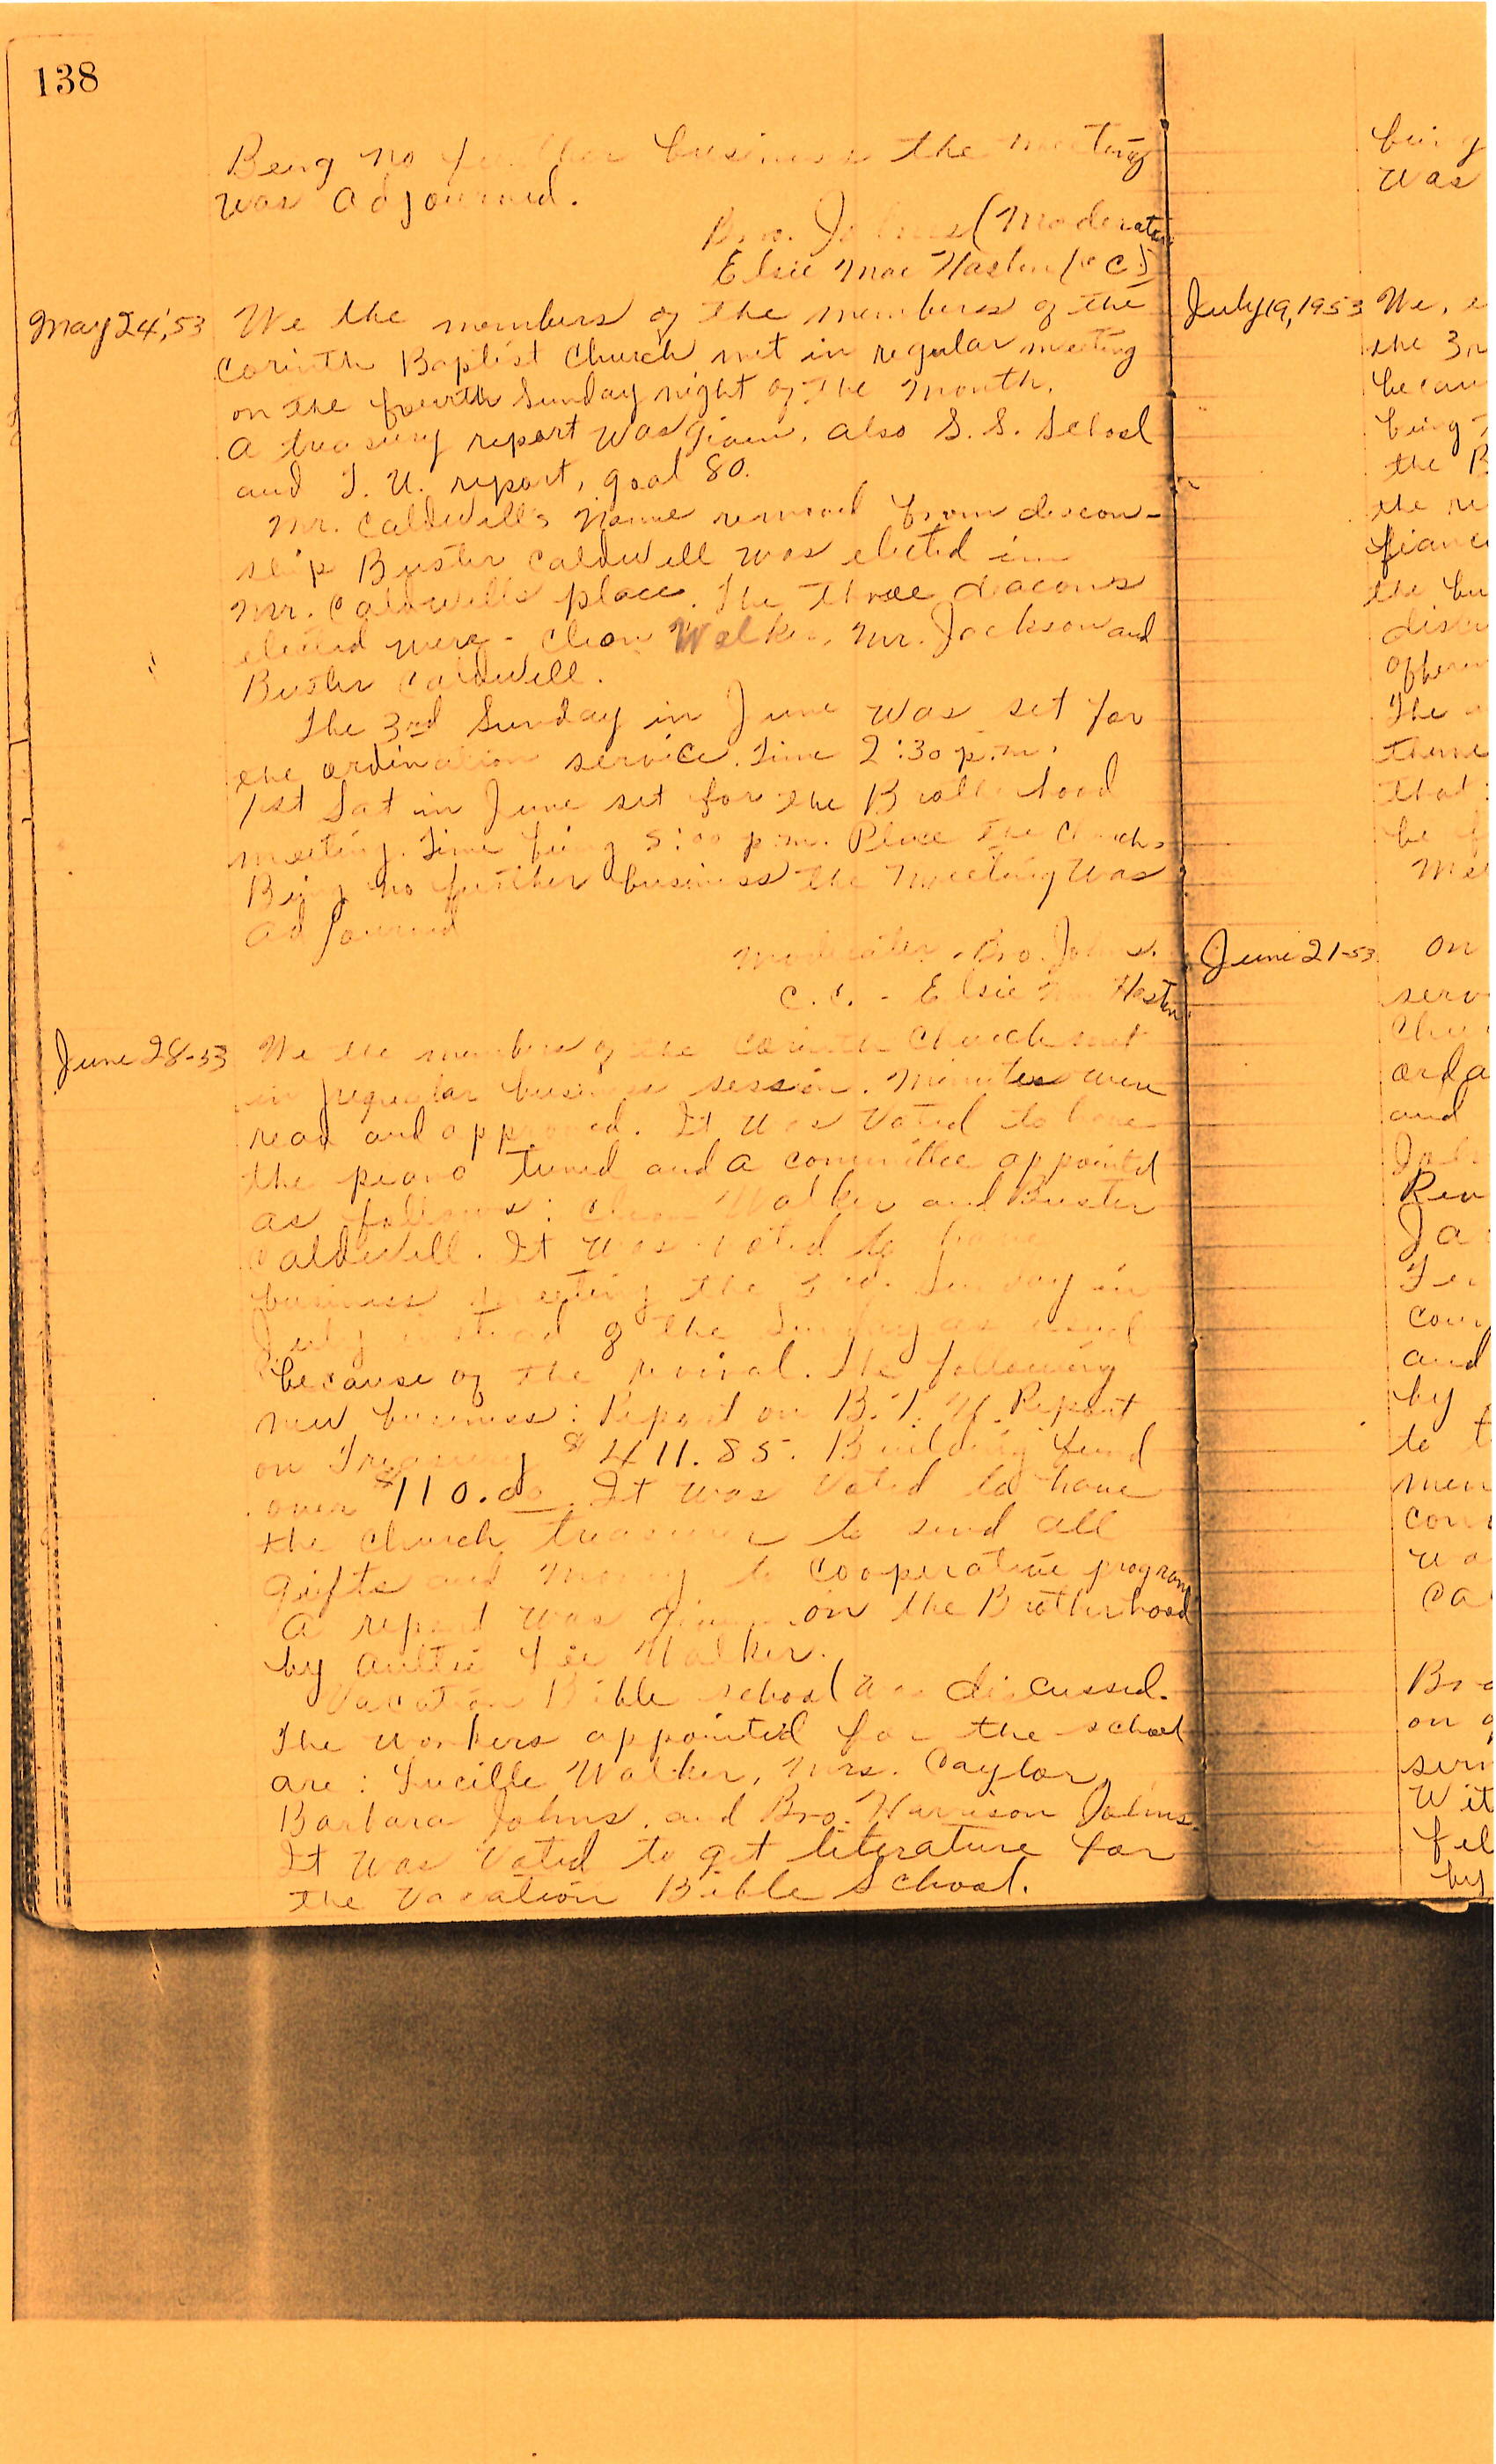 138
Being no further business the meeting
was adjourned.
Bro. Johns (Moderator
Elsie Mae Hasten (C C)
May 24, '53 We the members of the members of the
Corinth Baptist Church met in regular meeting
on the fourth Sunday night of the month.
A treasury report was given, also S. S. School
and T. U. report, goal 80.
Mr. Caldwell's name removed from deacon-
ship Buster Caldwell was elected in
Mr. Caldwells place. The three deacons
elected were - Cleon Walker, Mr. Jackson and
Buster Caldwell.
The 3rd Sunday in June was set for
the ordination service. Time 2:30 p.m.
1st Sat in June set for the Brotherhood
meeting. Time being 5:00 p.m. Place the Church.
Being no further business the meeting was
adjourned
Moderater - Bro. Johns.
C.C. - Elsie Mae Hasten
June 28-53 We the members of the Corinth Church met
in regular business session. Minutes were
read and approved. It was voted to have
the peano tuned and a committee appointed
as follows: Cleon Walker and Buster
Caldwell. It was voted to have
business meeting the 3rd. Sunday in
July instead of the Sunday as usual
because of the revival. The following
new business: Report on B. T. U. Report
on Treasury $411.85. Building fund
over $110.00. It was voted to have
the church treasurer to send all
gifts and money to cooperative program
A report was given on the Brotherhood
by Lee Walker.
Vacation Bible school was discussed.
The workers appointed for the school
are: Lucille Walker, Mrs. Caylor,
Barbara Johns, and Bro. Harrison Johns.
It was voted to get literature for
the Vacation Bible School.
being
was
July 19, 1953 We,
the 3r
becau
being
the B
the re
financ
the bu
discu
offerin
The
theme
that
be
Me
June 21-53 on
serv
Chu
orda
and
Joh
Rev
Ja
Te
com
and
by
to t
mem
con
wa
Ca
Bro
on
serv
Wit
fel
by